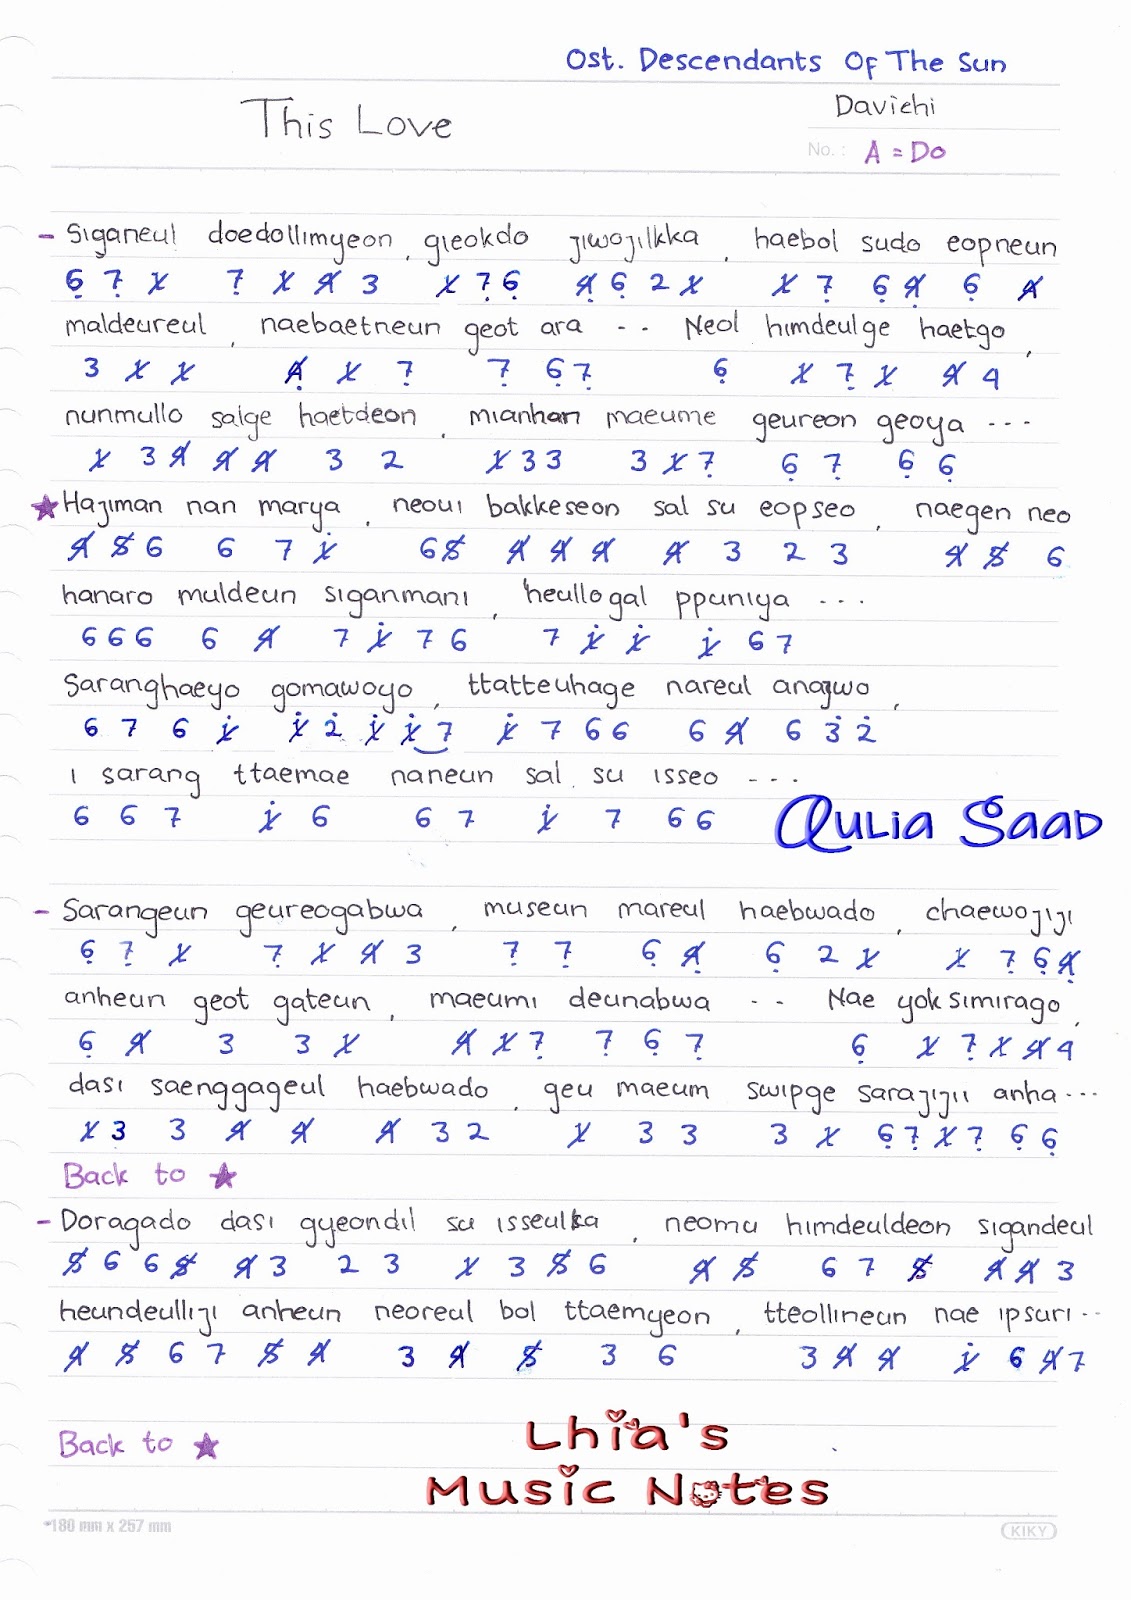 Ost. Descendants Of The Sun
This Love
Davichi
No. : A = Do
- Siganeul doedollimyeon , gieokdo jiwojilkka , haebol sudo eopneun
6̣ 7̣ 1̸ 7̣ 1̸ 4̸ 3 1̸ 7̣ 6̣ 4̸̣ 6̣ 2 1̸ 1̸ 7̣ 6̣ 4̸̣ 6̣ 4̸
maldeureul , naebaetneun geot ara - - Neol himdeulge haetgo ,
3 1̸ 1̸ 4̸̣ 1̸ 7̣ 7̣ 6̣ 7̣ 6̣ 1̸ 7̣ 1̸ 4̸ 4
nunmullo salge haetdeon , mianhan maeume geureon geoya - - -
1̸ 3 4̸ 4̸ 4̸ 3 2 1̸ 3 3 3 1̸ 7̣ 6̣ 7̣ 6̣ 6̣
★ Hajiman nan marya , neoui bakkeseon sal su eopseo , naegen neo
4̸ 5̸ 6 6 7 1̸̇ 6 5̸ 4̸ 4̸ 4̸ 4̸ 3 2 3 4̸ 5̸ 6
hanaro muldeun siganmani , heullogal ppuniya - - -
6 6 6 6 4̸ 7 1̸̇ 7 6 7 1̸̇ 1̸̇ 1̸̇ 6 7
Saranghaeyo gomawoyo , ttatteuhage nareul anajwo ,
6 7 6 1̸̇ 1̸̇ 2̇ 1̸̇ 1̸̇ 7 1̸̇ 7 6 6 6 4̸ 6 3̇ 2̇
i sarang ttaemae naneun sal su isseo - - -
6 6 7 1̸̇ 6 6 7 1̸̇ 7 6 6
Qulia Saad
- Sarangeun geureogabwa , museun mareul haebwado , chaewojiji
6̣ 7̣ 1̸ 7̣ 1̸ 4̸ 3 7̣ 7̣ 6̣ 4̸̣ 6̣ 2 1̸ 1̸ 7̣ 6̣ 4̸̣
anheun geot gateun , maeumi deunabwa - - Nae yoksimirago ,
6̣ 4̸ 3 3 1̸ 4̸ 1̸ 7̣ 7̣ 6̣ 7̣ 6̣ 1̸ 7̣ 1̸ 4̸ 4
dasi saenggageul haebwado , geu maeum swipge sarajijii anha - - -
1̸ 3 3 4̸ 4̸ 4̸ 3 2 1̸ 3 3 3 1̸ 6̣ 7̣ 1̸ 7̣ 6̣ 6̣
Back to ★
- Doragado dasi gyeondil su isseulkka , neomu himdeuldeon sigandeul
5̸ 6 6 5̸ 4̸ 3 2 3 1̸ 3 5̸ 6 4̸ 5̸ 6 7 5̸ 4̸ 4̸ 3
heundeulliji anheun neoreul bol ttaemyeon , tteollineun nae ipsuri - -
4̸ 5̸ 6 7 5̸ 4̸ 3 4̸ 5̸ 3 6 3 4̸ 4̸ 1̸̇ 6 4̸ 7
Back to ★
Lhia's
Music Notes
*180 mm x 257 mm
KIKY